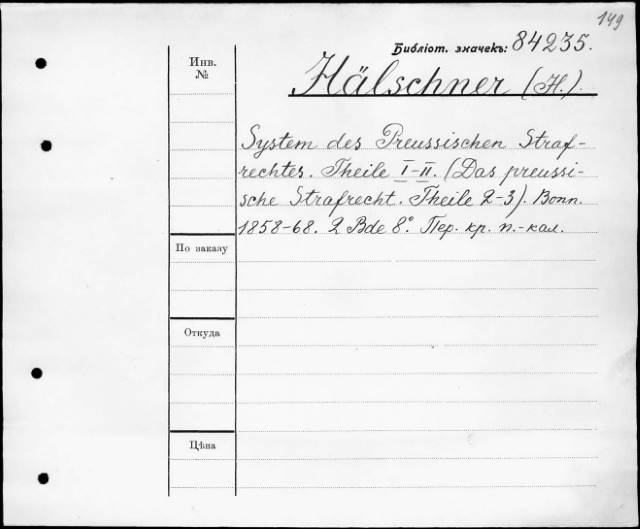 149
Библіот. значекъ: 84235.
Инв. №
Hälschner (H.).
System des Preussischen Straf-
rechtes. Theile I-II. (Das preussi-
sche Strafrecht. Theile 2-3). Bonn.
1858-68. 2 Bde 8°. Пер. кр. п.-кал.
По заказу
Откуда
Цѣна